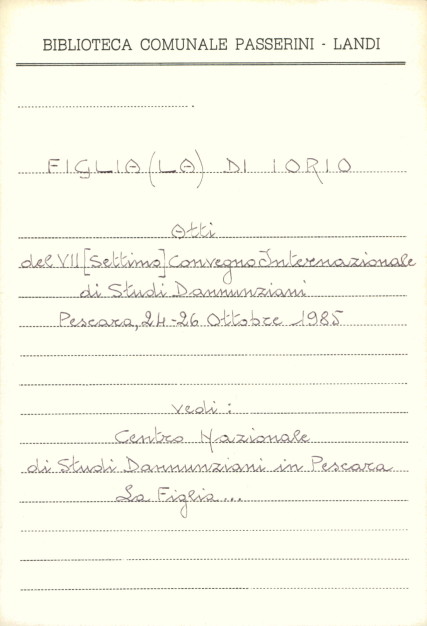 BIBLIOTECA COMUNALE PASSERINI - LANDI
FIGLIA (LA) DI IORIO
Atti
del VII [Settimo] Convegno Internazionale
di Studi Dannunziani
Pescara, 24-26 Ottobre 1985
vedi:
Centro Nazionale
di Studi Dannunziani in Pescara
La Figlia...